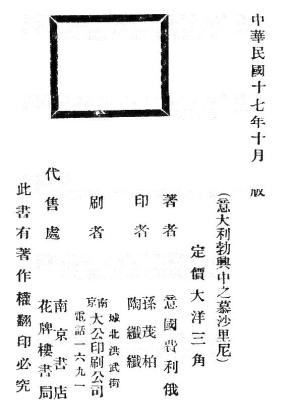 中華民國十七年十月 版
(意大利勃興中之慕沙里尼)
定價大洋三角
著者 意國費利俄
印者 孫茂柏
陶纖纖
刷者 南京大公印刷公司
城北洪武街
電話一六九一
代售處 南京書店
花牌樓書局
此書有著作權翻印必究